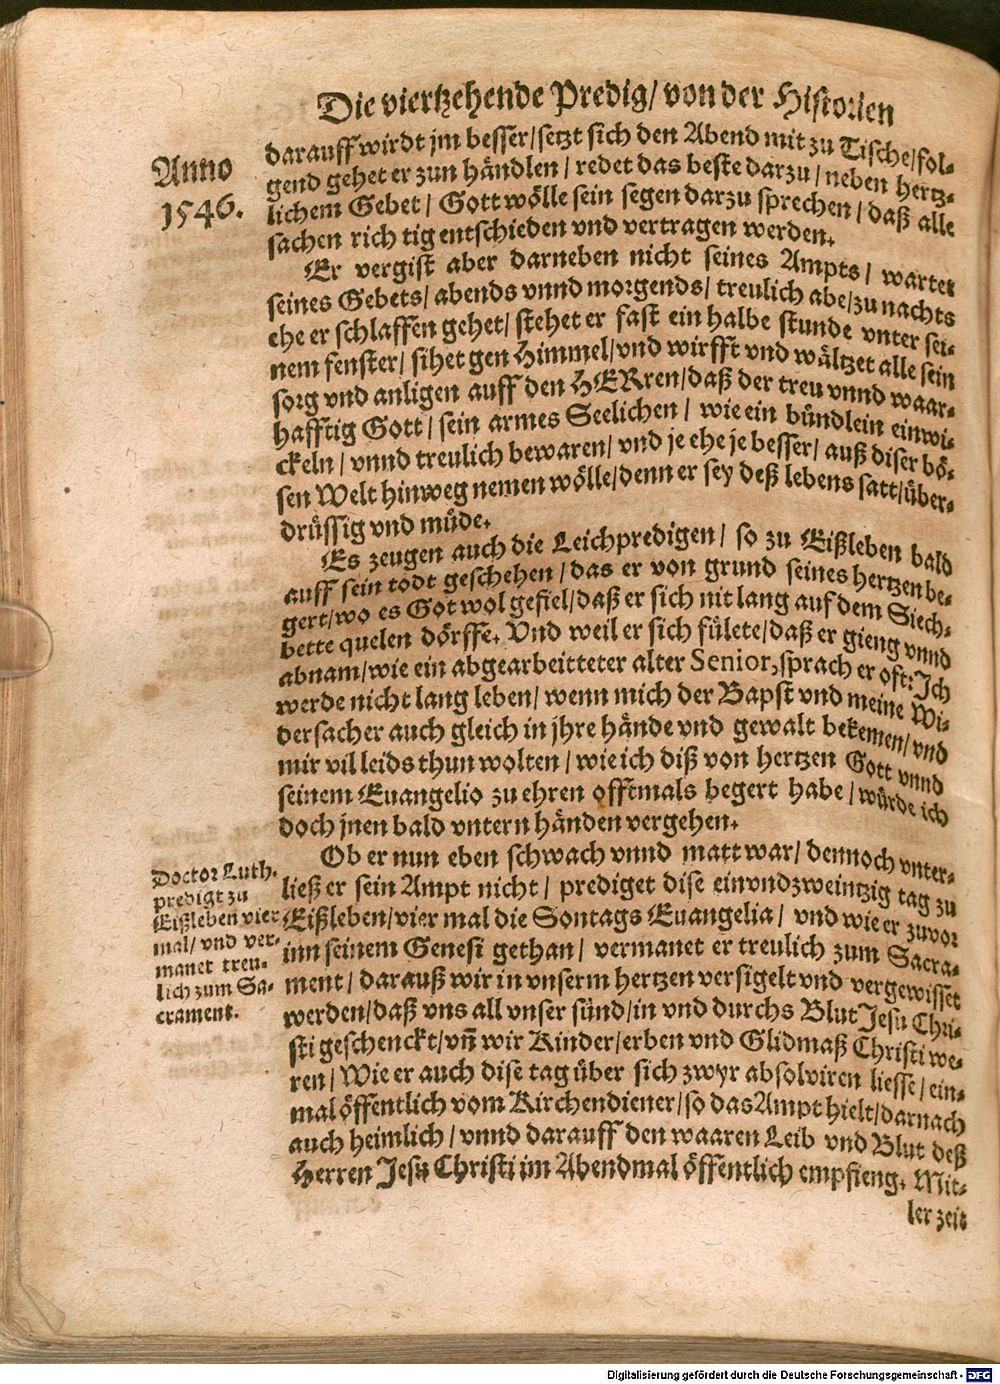 Die viertzehende Predig/ von der Historien
Anno
1546.
darauff wirdt jm besser/setzt sich den Abend mit zu Tische/fol-
gend gehet er zun händlen/ redet das beste darzu/ neben hertz-
lichem Gebet/ Gott wölle sein segen darzu sprechen/ daß alle
sachen richtig entschieden vnd vertragen werden.
Er vergist aber darneben nicht seines Ampts/ wartet
seines Gebets/ abends vnnd morgends/ treulich abe/zu nachts
ehe er schlaffen gehet/ stehet er fast ein halbe stunde vnter sei-
nem fenster/ sihet gen Himmel/vnd wirfft vnd wältzet alle sein
sorg vnd anligen auff den HERren/daß der treu vnnd waar-
hafftig Gott/ sein armes Seelichen/ wie ein bündlein einwi-
ckeln/ vnnd treulich bewaren/ vnd je ehe je besser/ auß diser bö-
sen Welt hinweg nemen wölle/denn er sey deß lebens satt/über-
drüssig vnd müde.
Es zeugen auch die Leichpredigen/ so zu Eißleben bald
auff sein todt geschehen/das er von grund seines hertzen be-
gert/wo es Got wol gefiel/daß er sich nit lang auf dem Siech-
bette quelen dörffe. Vnd weil er sich fülete/daß er gieng vnnd
abnam/wie ein abgearbeitteter alter Senior,sprach er oft: Ich
werde nicht lang leben/ wenn mich der Bapst vnd meine Wi-
dersacher auch gleich in jhre hände vnd gewalt bekemen/vnd
mir vil leids thun wolten/ wie ich diß von hertzen Gott vnnd
seinem Euangelio zu ehren offtmals begert habe/ würde ich
doch jnen bald vntern händen vergehen.
Ob er nun eben schwach vnnd matt war/ dennoch vnter-
ließ er sein Ampt nicht/ prediget dise einvndzweintzig tag zu
Eißleben/vier mal die Sontags Euangelia/ vnd wie er zuvor
inn seinem Genesi gethan/ vermanet er treulich zum Sacra-
ment/ darauß wir in vnserm hertzen versigelt vnd vergewisset
werden/daß vns all vnser sünd/in vnd durchs Blut Jesu Chri-
sti geschenckt/vñ wir Kinder/erben vnd Glidmaß Christi we-
ren/ Wie er auch dise tag über sich zwyr absolviren liesse/ ein-
mal öffentlich vom Kirchendiener/so das Ampt hielt/darnach
auch heimlich/ vnnd darauff den waaren Leib vnd Blut deß
Herren Jesu Christi im Abendmal öffentlich empfieng. Mit-
ler zeit
Doctor Luth.
predigt zu
Eißleben vier
mal/ vnd ver-
manet treu-
lich zum Sa-
crament.
Digitalisierung gefördert durch die Deutsche Forschungsgemeinschaft - DFG